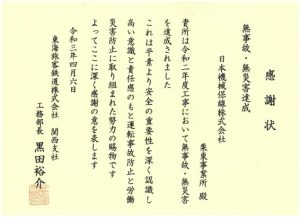 感謝状
無事故・無災害達成
日本機械保線株式会社
栗東事業所 殿
貴所は令和二年度工事において無事故・無災害
を達成されました
これは平素より安全の重要性を深く認識し
高い意識と責任感のもと運転事故防止と労働
災害防止に取り組まれた努力の賜物です
よってここに深く感謝の意を表します
令和三年四月六日
東海旅客鉄道株式会社 関西支社
工務部長 黒田裕介